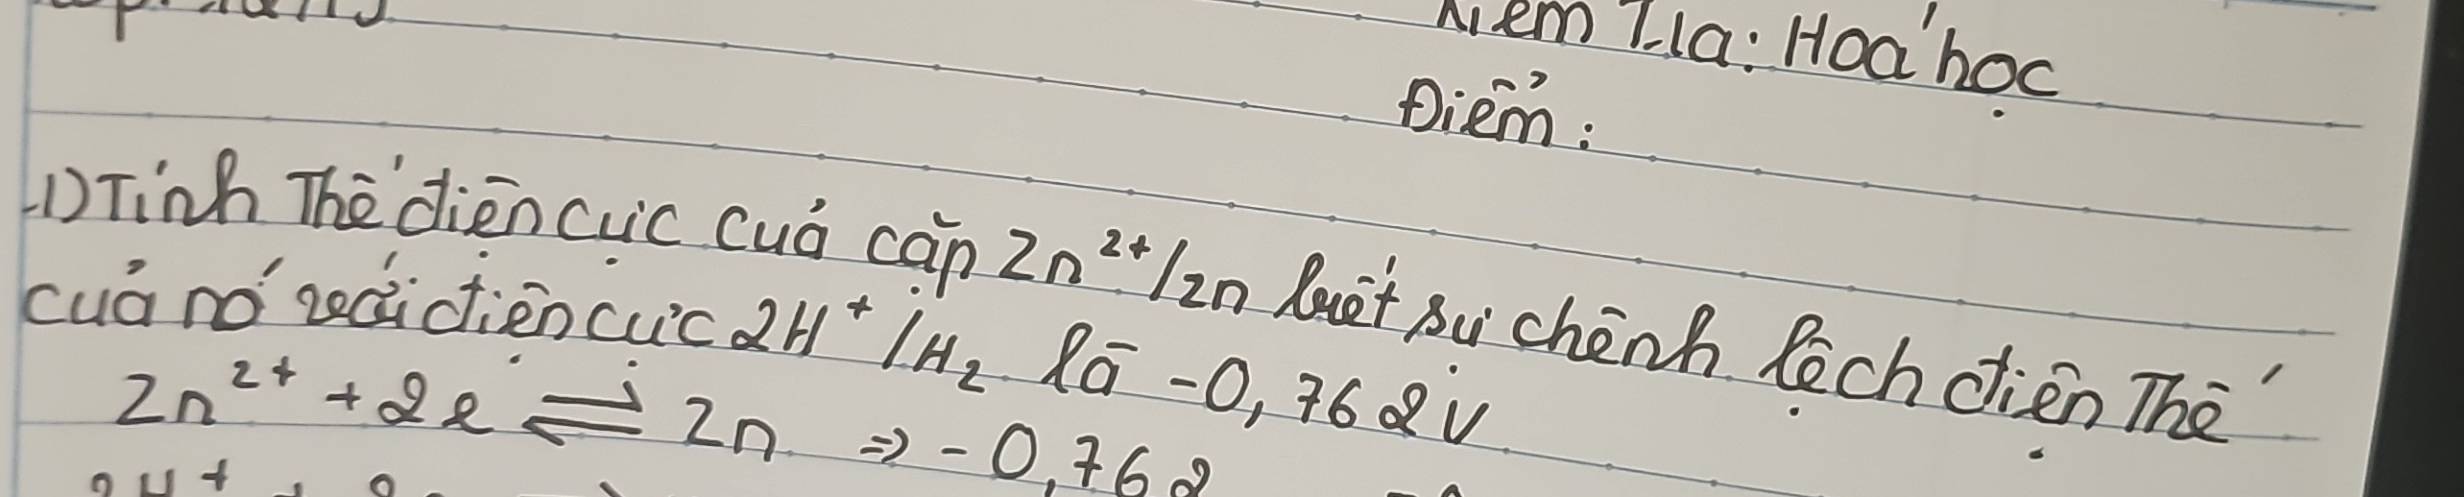 Kiểm Tra: Hoá học
Điểm:
1) Tính Thế điện cực của cặp Zn²⁺/Zn biết sự chênh lệch điện Thế
của nó với điện cực 2H⁺/H₂ là -0,762V
Zn²⁺ + 2e ⇌ Zn ⇒ -0,762
2H⁺ +